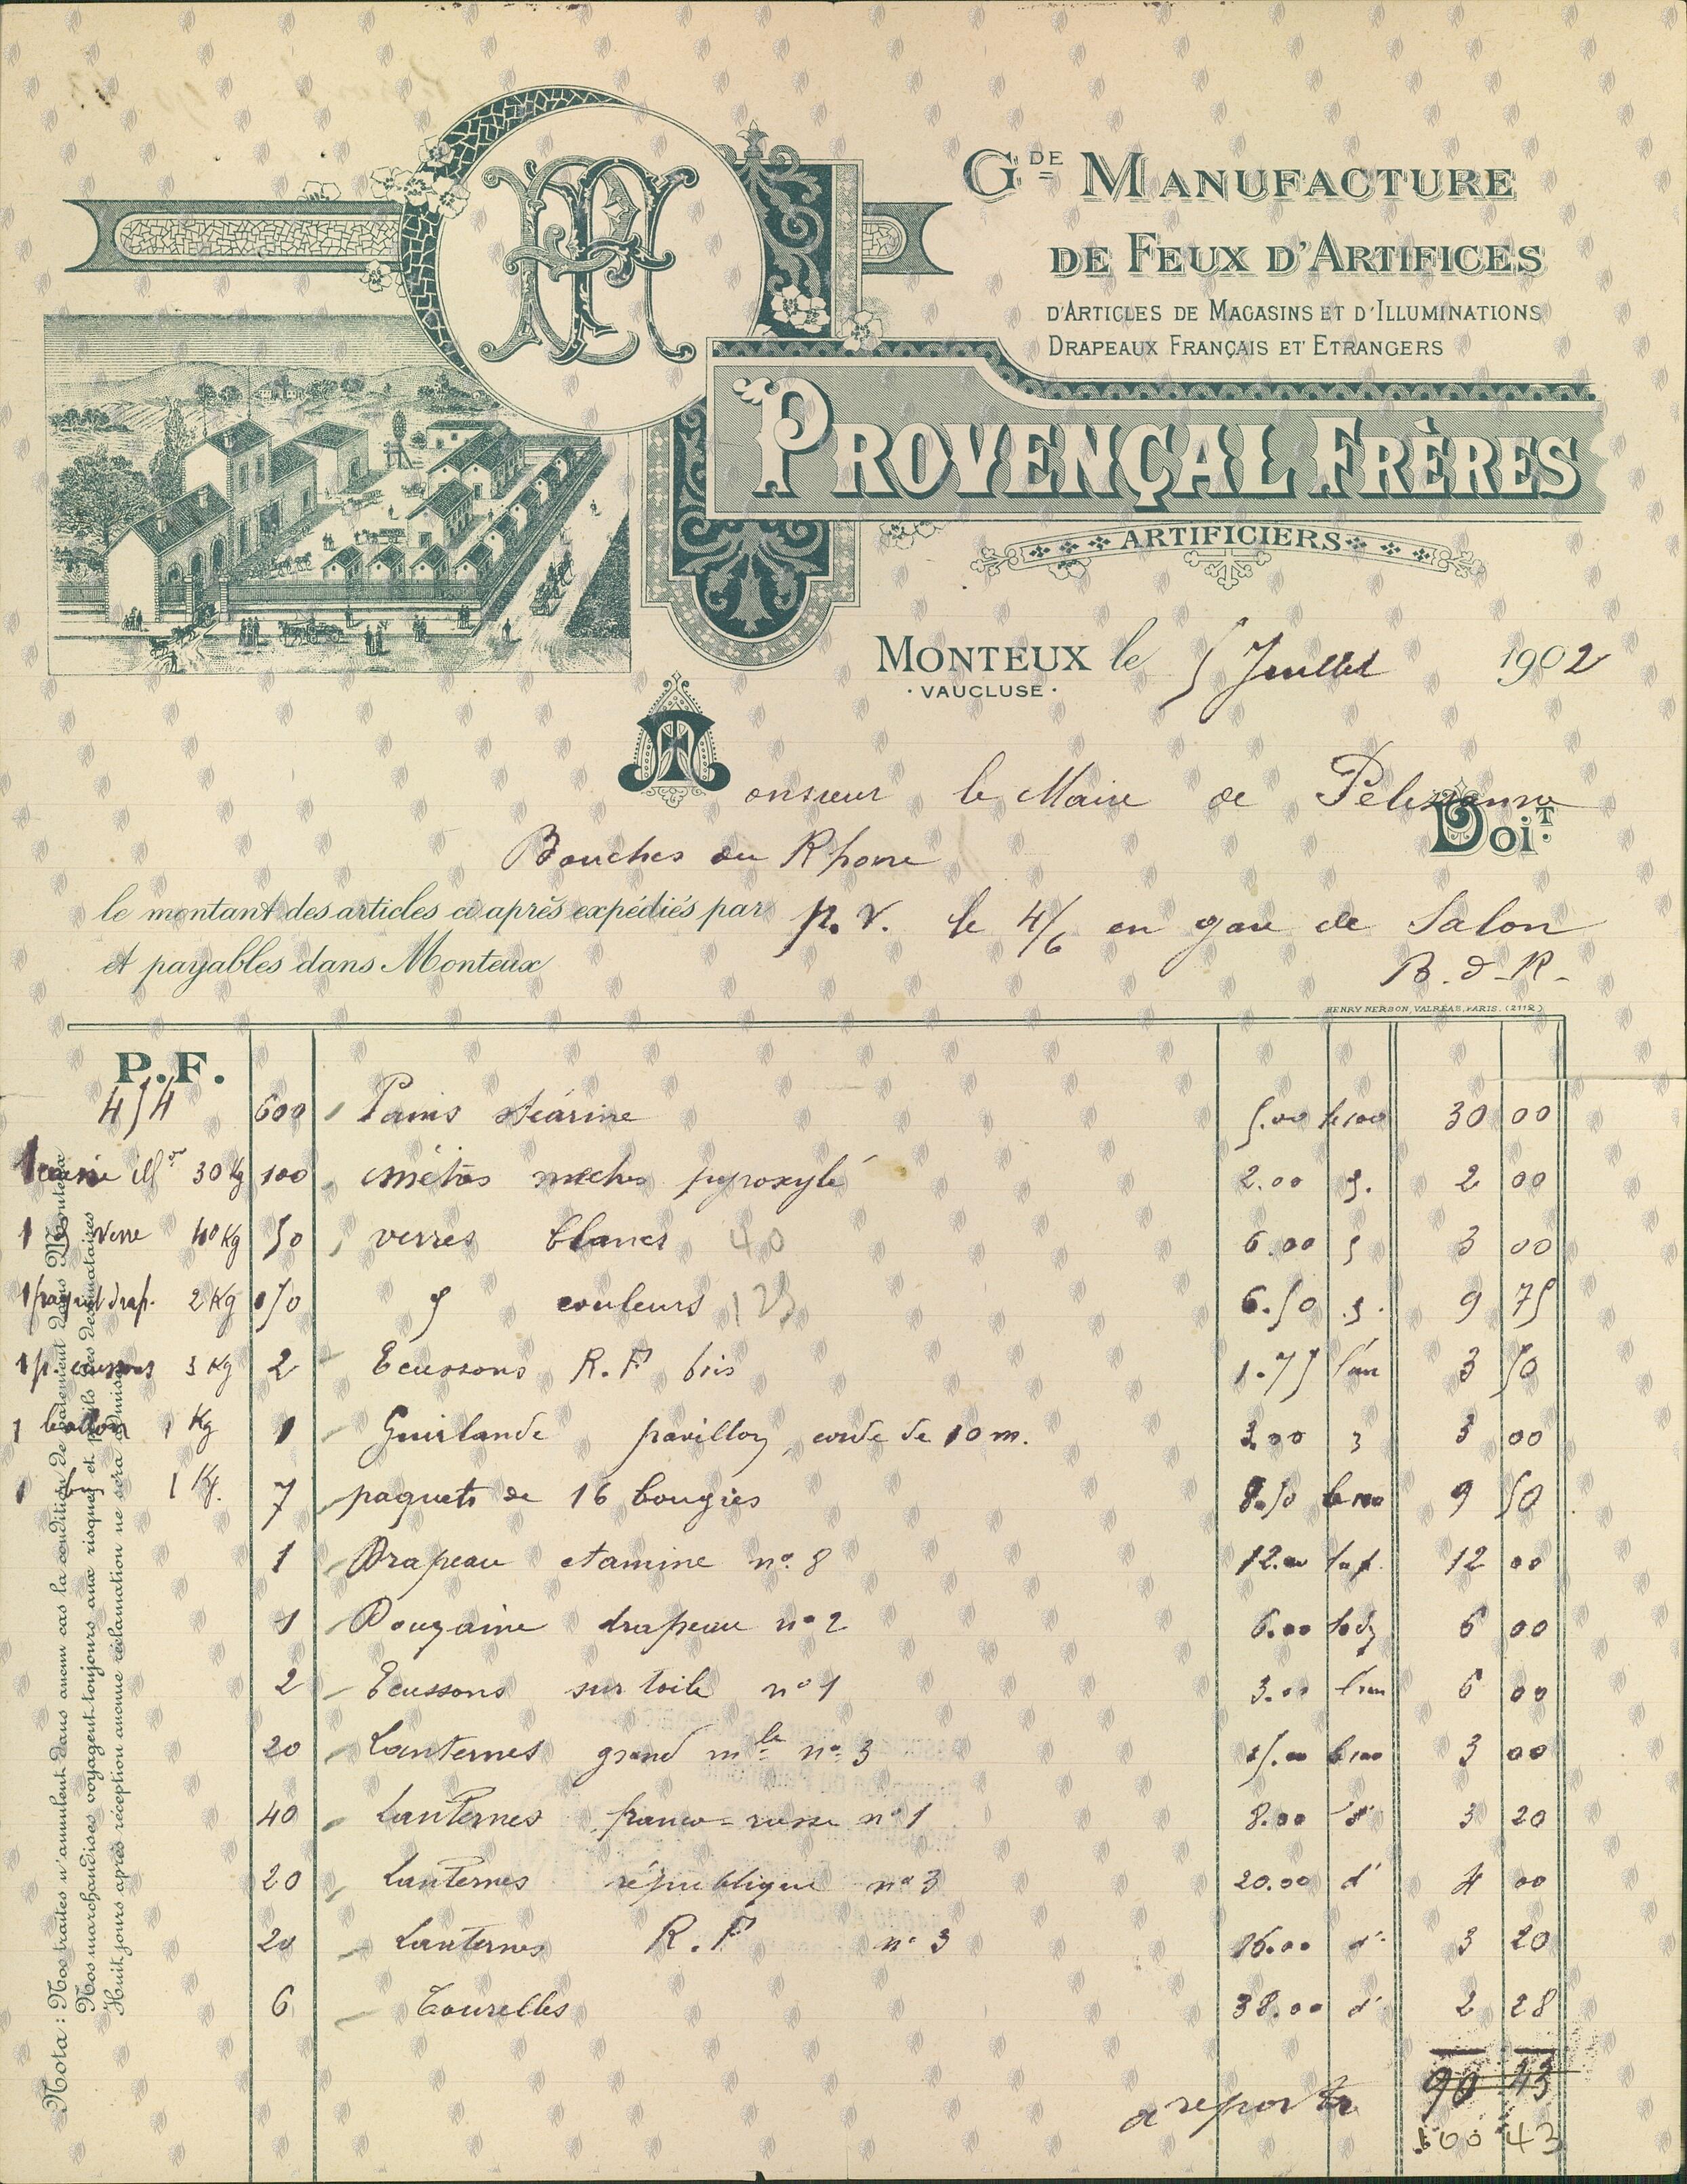 GDE MANUFACTURE
DE FEUX D'ARTIFICES
D'ARTICLES DE MAGASINS ET D'ILLUMINATIONS
DRAPEAUX FRANÇAIS ET ETRANGERS
PROVENÇAL FRÈRES
ARTIFICIERS
MONTEUX le 5 Juillet 1902
· VAUCLUSE ·
Monsieur le Maire de Pelissanne
DoiT.
Bouches du Rhone
le montant des articles ci après expédiés par p.v. le 4/6 en gare de Salon
et payables dans Monteux B.d.R.
HENRY NERSON, VALRÉAS, PARIS. (2112)
P.F.
454 600 Pains stéarine 5.00 le 100 30 00
1 caisse illon 30 Kg 100 mètres mèches pyroxylé 2.00 2 00
1 verre 40 Kg 50 verres blancs 40 6.00 3 00
1 paquet drap. 2 Kg 150 couleurs 123 6.50 9 75
1 p. ecussons 3 Kg 2 Ecussons R.F bois 1.75 l'un 3 50
1 ballon 1 Kg 1 Guirlande pavillon, corde de 10 m. 3.00 3 00
1 1 Kg. 7 paquets de 16 bougies 8.50 le 100 9 50
1 Drapeau etamine no. 8 12.00 12 00
1 Douzaine drapeau no 2 6.00 la dz 6 00
2 Ecussons sur toile no 1 3.00 l'un 6 00
20 Lanternes grand mle no 3 15.00 le 100 3 00
40 Lanternes franco-russe no 1 8.00 d° 3 20
20 Lanternes république no 3 20.00 d° 4 00
20 Lanternes R.F no 3 16.00 d° 3 20
6 Tourelles 38.00 d° 2 28
90 43
a reporter
100 43
Nota : Nos traites n'annulent dans aucun cas la condition de paiement dans Monteux
Nos marchandises voyagent toujours aux risques et périls des destinataires
Huit jours après réception aucune réclamation ne sera admise